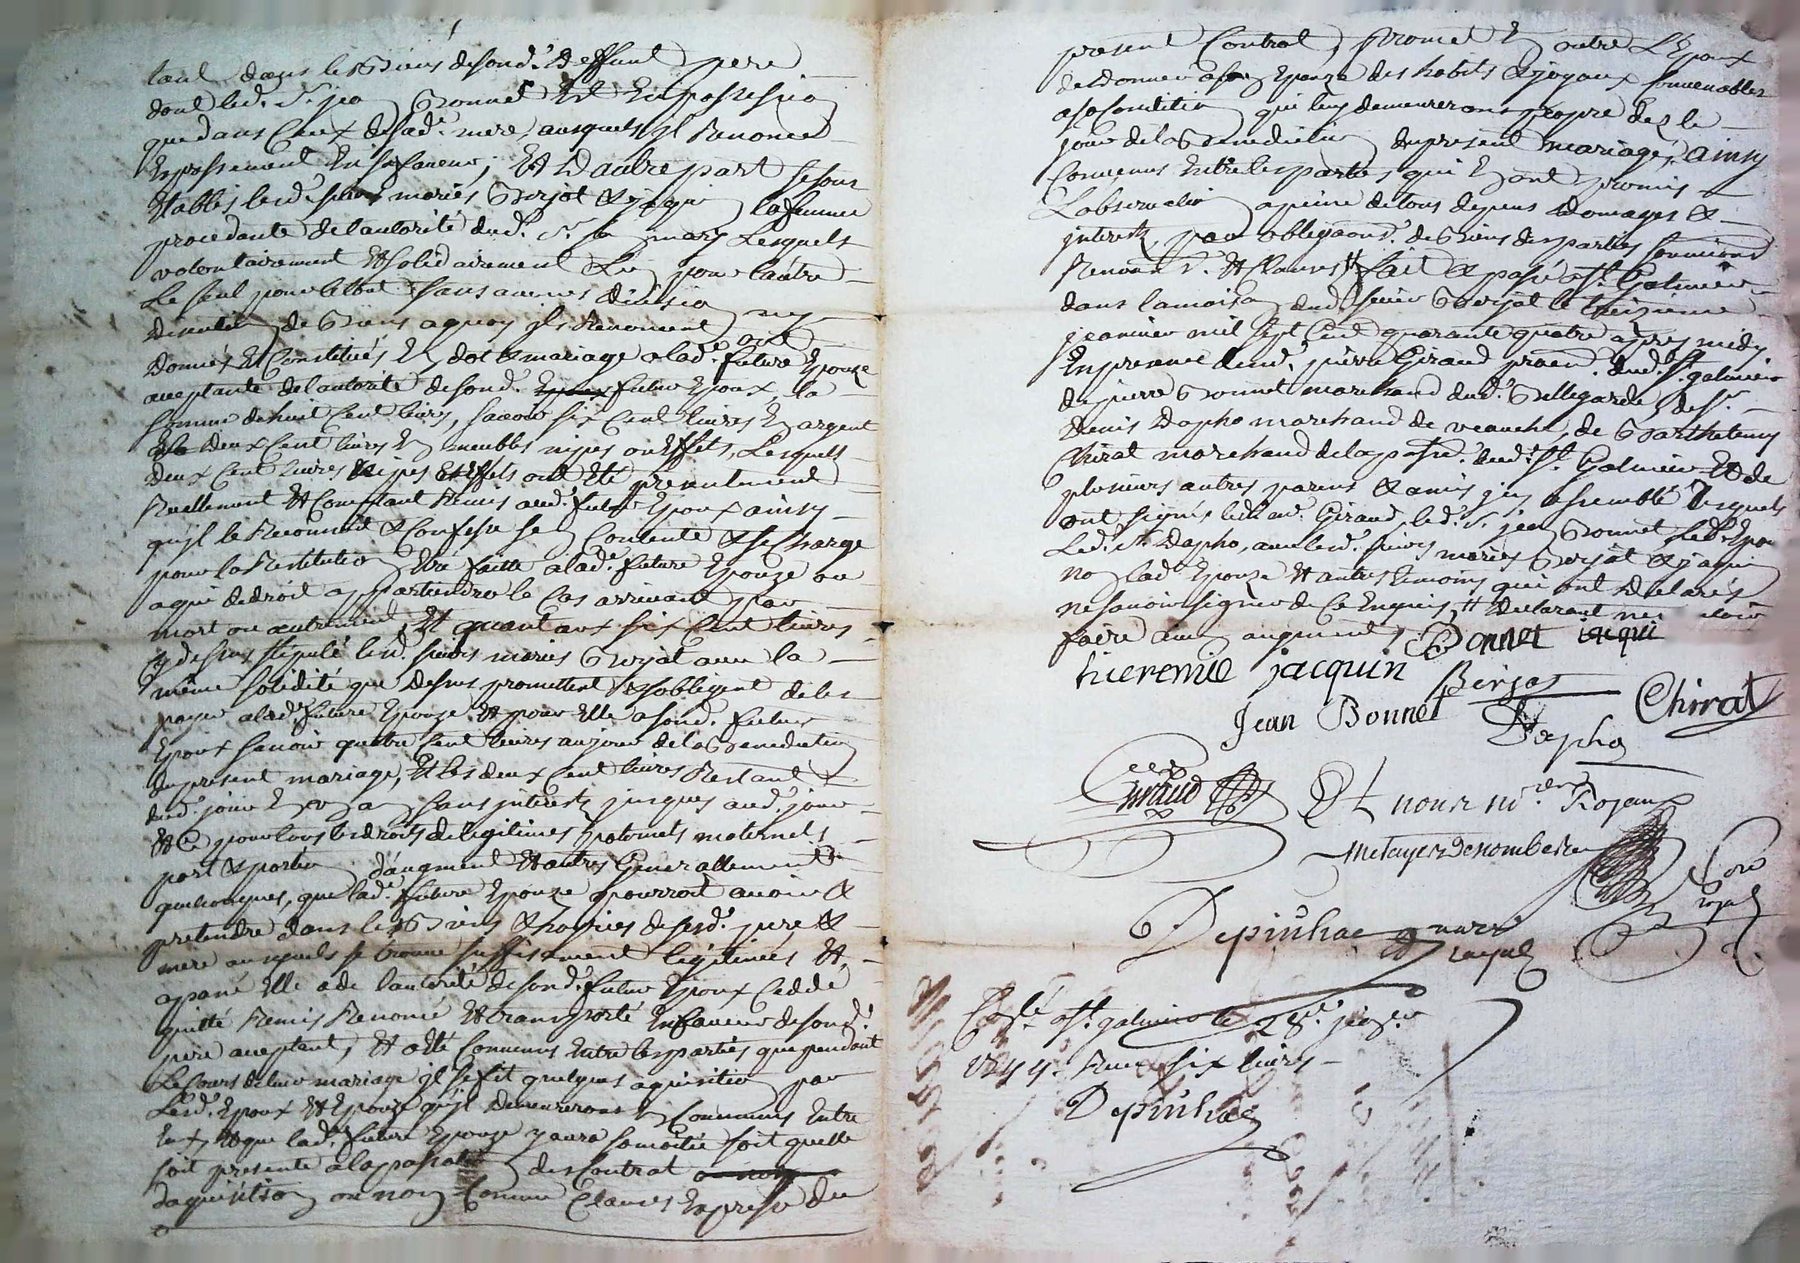 tant dans les Biens de fond.t deffunt pere
dont led. Sr jean Bonnet Est En possession
que dans Ceux de sad.e mere, ausquels jl Renonce
Expressement En sa faveur; Et D'autre part se sont
Etablis lesd. sieurs mariés Berjat & jaquin la femme
procedante de l'autorité dud. Sr son mary Lesquels
volontairement Et solidairement L'un pour l'autre
Le seul pour le tout sans aucunes division ny
discution de Biens a quoy jls Renoncent ont
Donnés Et Constitués En dot & mariage a lad.e future Epouze
aceptante de l'autorité de sond. futur Epoux, la
somme de huit Cent livres, sacoir six Cent livres En argent
& deux Cent livres En meubles nipes ou Effets, Lesquels
deux Cent livres Nipes & Effets ont Eté presentement
Reellement Et Comptant Remis aud. futur Epoux ainsy
qu'jl le Reconnoit & Confesse s'en Contente & se Charge
pour la Restitution Etre faitte a lad.e future Epouze ou
a qui de droit apartiendra le Cas arrivant par
mort ou autrement, Et quant aux six Cent livres
cy dessus stipulé lesd. sieurs mariés Berjat avec la
même solidité que dessus promettent & s'obligent de les
payer a lad.e future Epouze Et pour Elle a sond. futur
Epoux savoir quatre Cent livres au jour de la Benediction
du present mariage, Et les deux Cent livres Restant
dud. jour En un an sans jnterets jusques aud. jour
Et ce pour tous les droits de legitimes paternels maternels
part & portion d'augment Et autres Generallement
quelconques, que lad.e future Epouze pourroit avoir &
pretendre dans les Biens & hoiries de sesd. pere &
mere ausquels se trouve suffisament légitimée Et
apané Elle a de l'autorité de sond. futur Epoux Cedde
quitté Remis Renoncé Et transporté En faveur de sond.
pere aceptant, Et a été Convenus Entre les parties que pendant
Le Cours de leur mariage jl se fit quelques aquisition par
Lesd. Epoux Et Epouze qu'jl demeureront En Communs Entre
Eux, Et que lad.e future Epouze y aura sa moitié soit qu'elle
soit presente a la passation des Contrat
d'aquisition ou non Comme Clauses Expresse du
present Contrat, promet En outre L'Epoux
de donner a son Epouze des habits & joyaux Convenables
a sa Condition qui luy demeureront propre dez le
jour de la Benediction du present mariage, ainsy
Convenus Entre les parties, qui En ont promis
L'observation a peine de tous depens domages &
jnterets, par obligaons. de Biens des parties soumissions
Renonc. Et Clauses fait & passé a St Galmier
dans la maison dud. sieur Berjat le treizieme
jeanvier mil sept Cent quarante quatre apres midy
En presence de md. pierre Giraud dud. St galmier
de pierre Bonnet marchand dud. Bellegarde, de Sr
Denis Dapho marchand de veauche, de Barthelemy
Chirat marchand de la dud. St Galmier Et de
plusieurs autres parens & amis jcy assemblé Lesquels
ont signés led. Giraud, led. Sr jean Bonnet, led. Epoux
Led. Sr Dapho, avec lesd. sieurs mariés Berjat & jaquin
non lad. Epouze Et autres temoins qui ont declarés
ne savoir signer de Ce Enquis, Et declarant ne vouloir
faire aucun augment, Bonnet jacqui
hieremie jacquin
Berjat
Jean Bonnet
Chirat
Dapho
Giraud
Et nous no.re Royaux
Depinhac
Con.lé a St galmier le 28e janv.er
1744. Reçu six livres
Depinhac